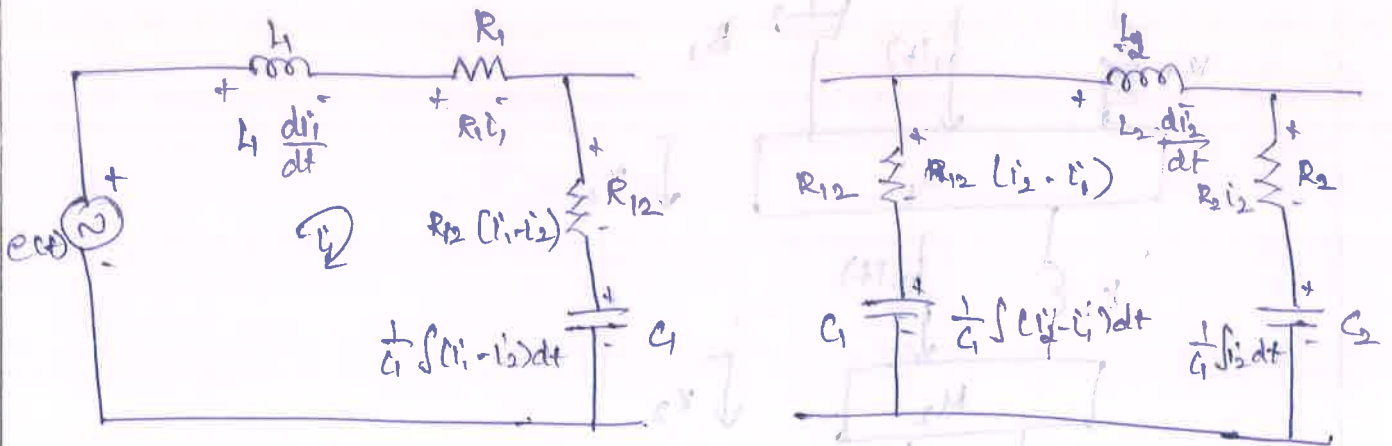 L1
R1
+
+
L1 di1/dt
R1 i1
+
R12
-
+
e(t)
-
i1
R12 (i1-i2)
+
C1
-
1/C1 ∫(i1-i2)dt
L2
+
L2 di2/dt
+
R12
R12 (i2-i1)
-
+
R2
R2 i2
-
+
C1
-
1/C1 ∫(i2-i1)dt
+
C2
-
1/C1 ∫i2 dt